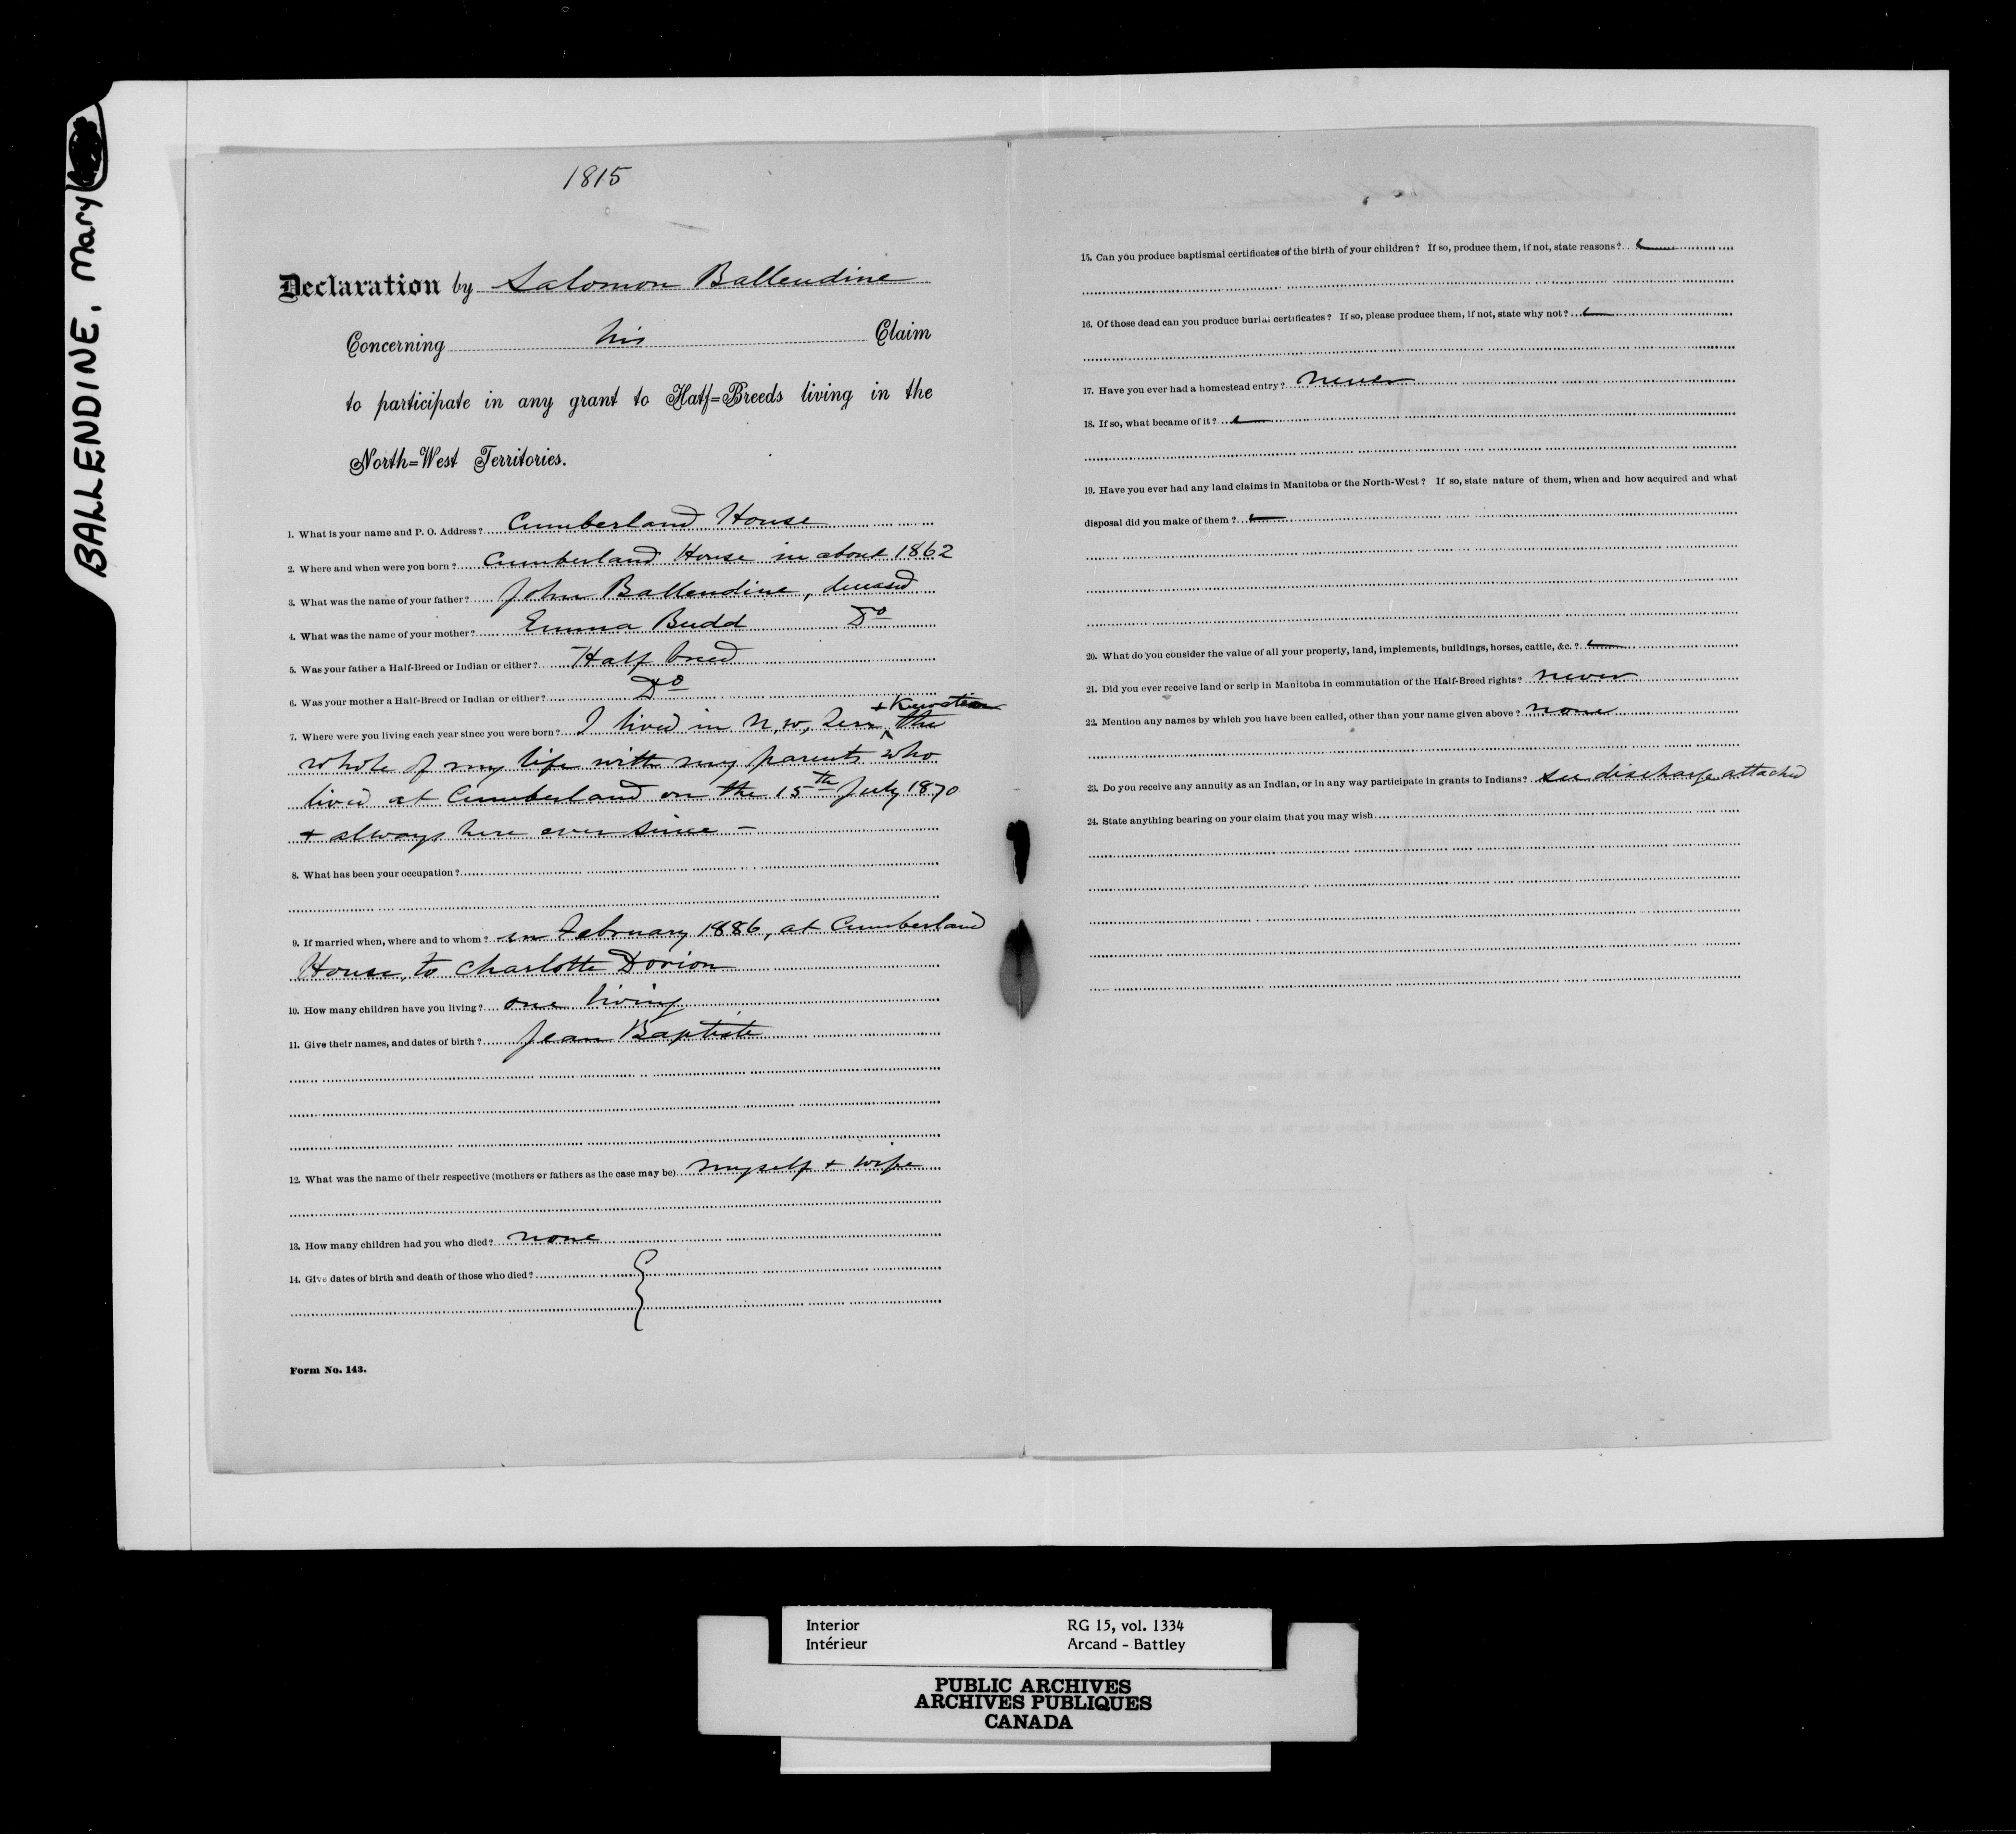 BALLENDINE, Mary
1815
Declaration by Salomon Ballendine
Concerning his Claim
to participate in any grant to Half=Breeds living in the
North=West Territories.
1. What is your name and P. O. Address? Cumberland House
2. Where and when were you born? Cumberland House in about 1862
3. What was the name of your father? John Ballendine, deceased
4. What was the name of your mother? Emma Budd Do
5. Was your father a Half-Breed or Indian or either? Half breed
6. Was your mother a Half-Breed or Indian or either? Do
7. Where were you living each year since you were born? I lived in N, W, Terr + Keewatin the
whole of my life with my parents who
lived at Cumberland on the 15th July 1870
+ always here ever since —
8. What has been your occupation?
9. If married when, where and to whom? in February 1886, at Cumberland
House, to Charlotte Dorion
10. How many children have you living? one living
11. Give their names, and dates of birth? Jean Baptiste
12. What was the name of their respective (mothers or fathers as the case may be) myself + wife
13. How many children had you who died? none
14. Give dates of birth and death of those who died?
Form No. 143.
15. Can you produce baptismal certificates of the birth of your children? If so, produce them, if not, state reasons?
16. Of those dead can you produce burial certificates? If so, please produce them, if not, state why not?
17. Have you ever had a homestead entry? never
18. If so, what became of it?
19. Have you ever had any land claims in Manitoba or the North-West? If so, state nature of them, when and how acquired and what
disposal did you make of them?
20. What do you consider the value of all your property, land, implements, buildings, horses, cattle, &c.?
21. Did you ever receive land or scrip in Manitoba in commutation of the Half-Breed rights? never
22. Mention any names by which you have been called, other than your name given above? none
23. Do you receive any annuity as an Indian, or in any way participate in grants to Indians? see discharge attached
24. State anything bearing on your claim that you may wish
Interior RG 15, vol. 1334
Intérieur Arcand - Battley
PUBLIC ARCHIVES
ARCHIVES PUBLIQUES
CANADA